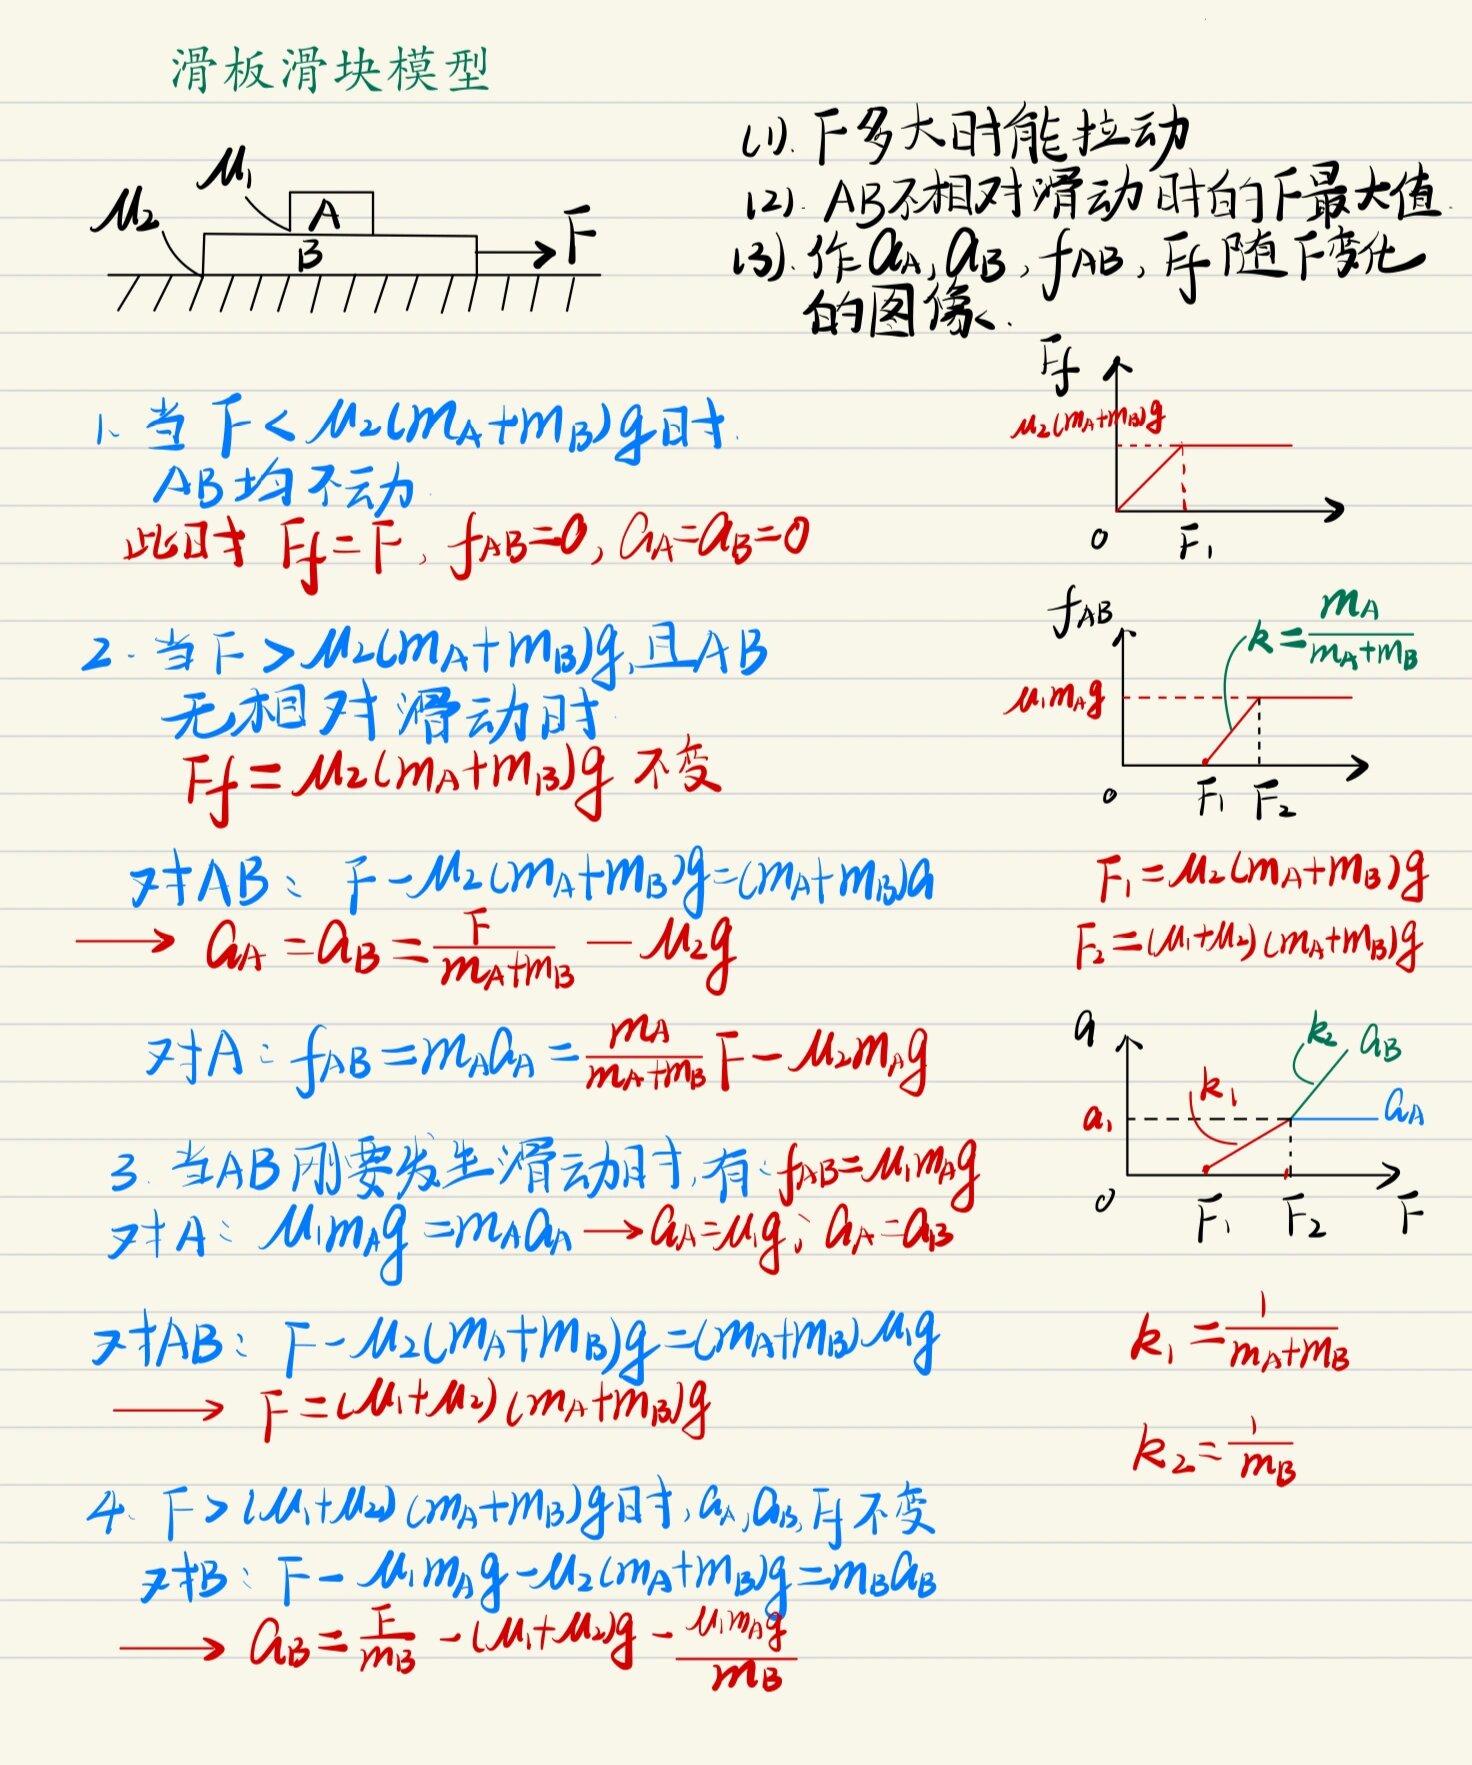 滑板滑块模型
μ₁
μ₂
A
B
F
(1). F多大时能拉动
(2). AB不相对滑动时的F最大值.
(3). 作aA, aB, fAB, Ff随F变化
的图像.
1. 当F<μ₂(mA+mB)g时.
AB均不动.
此时 Ff=F, fAB=0, aA=aB=0
2. 当F>μ₂(mA+mB)g,且AB
无相对滑动时
Ff=μ₂(mA+mB)g 不变
对AB: F-μ₂(mA+mB)g=(mA+mB)a
→ aA=aB=F/(mA+mB) - μ₂g
对A: fAB=mAaA=mA/(mA+mB) F-μ₂mAg
3. 当AB刚要发生滑动时,有: fAB=μ₁mAg
对A: μ₁mAg=mAaA→aA=μ₁g; aA=aB
对AB: F-μ₂(mA+mB)g=(mA+mB)μ₁g
→ F=(μ₁+μ₂)(mA+mB)g
4. F>(μ₁+μ₂)(mA+mB)g时,aA,aB,Ff不变
对B: F-μ₁mAg-μ₂(mA+mB)g=mBaB
→ aB=F/mB -(μ₁+μ₂)g - μ₁mAg/mB
Ff
μ₂(mA+mB)g
0
F₁
fAB
k=mA/(mA+mB)
μ₁mAg
0
F₁
F₂
F₁=μ₂(mA+mB)g
F₂=(μ₁+μ₂)(mA+mB)g
a
k₂
aB
k₁
a₁
aA
0
F₁
F₂
F
k₁=1/(mA+mB)
k₂=1/mB